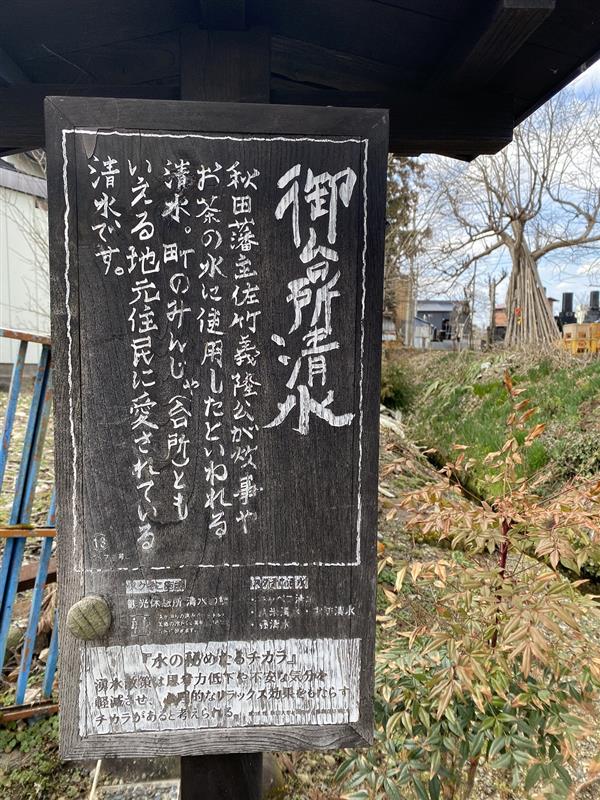 御台所清水
秋田藩主佐竹義隆公が炊事や
お茶の水に使用したといわれる
清水。町のみんじゃ(台所)とも
いえる地元住民に愛されている
清水です。
13
観光休憩所 清水の館
『水の秘めたるチカラ』
湧水散策は思考力低下や不安な気分を
軽減させ、的なリラックス効果をもたらす
チカラがあると考えられる